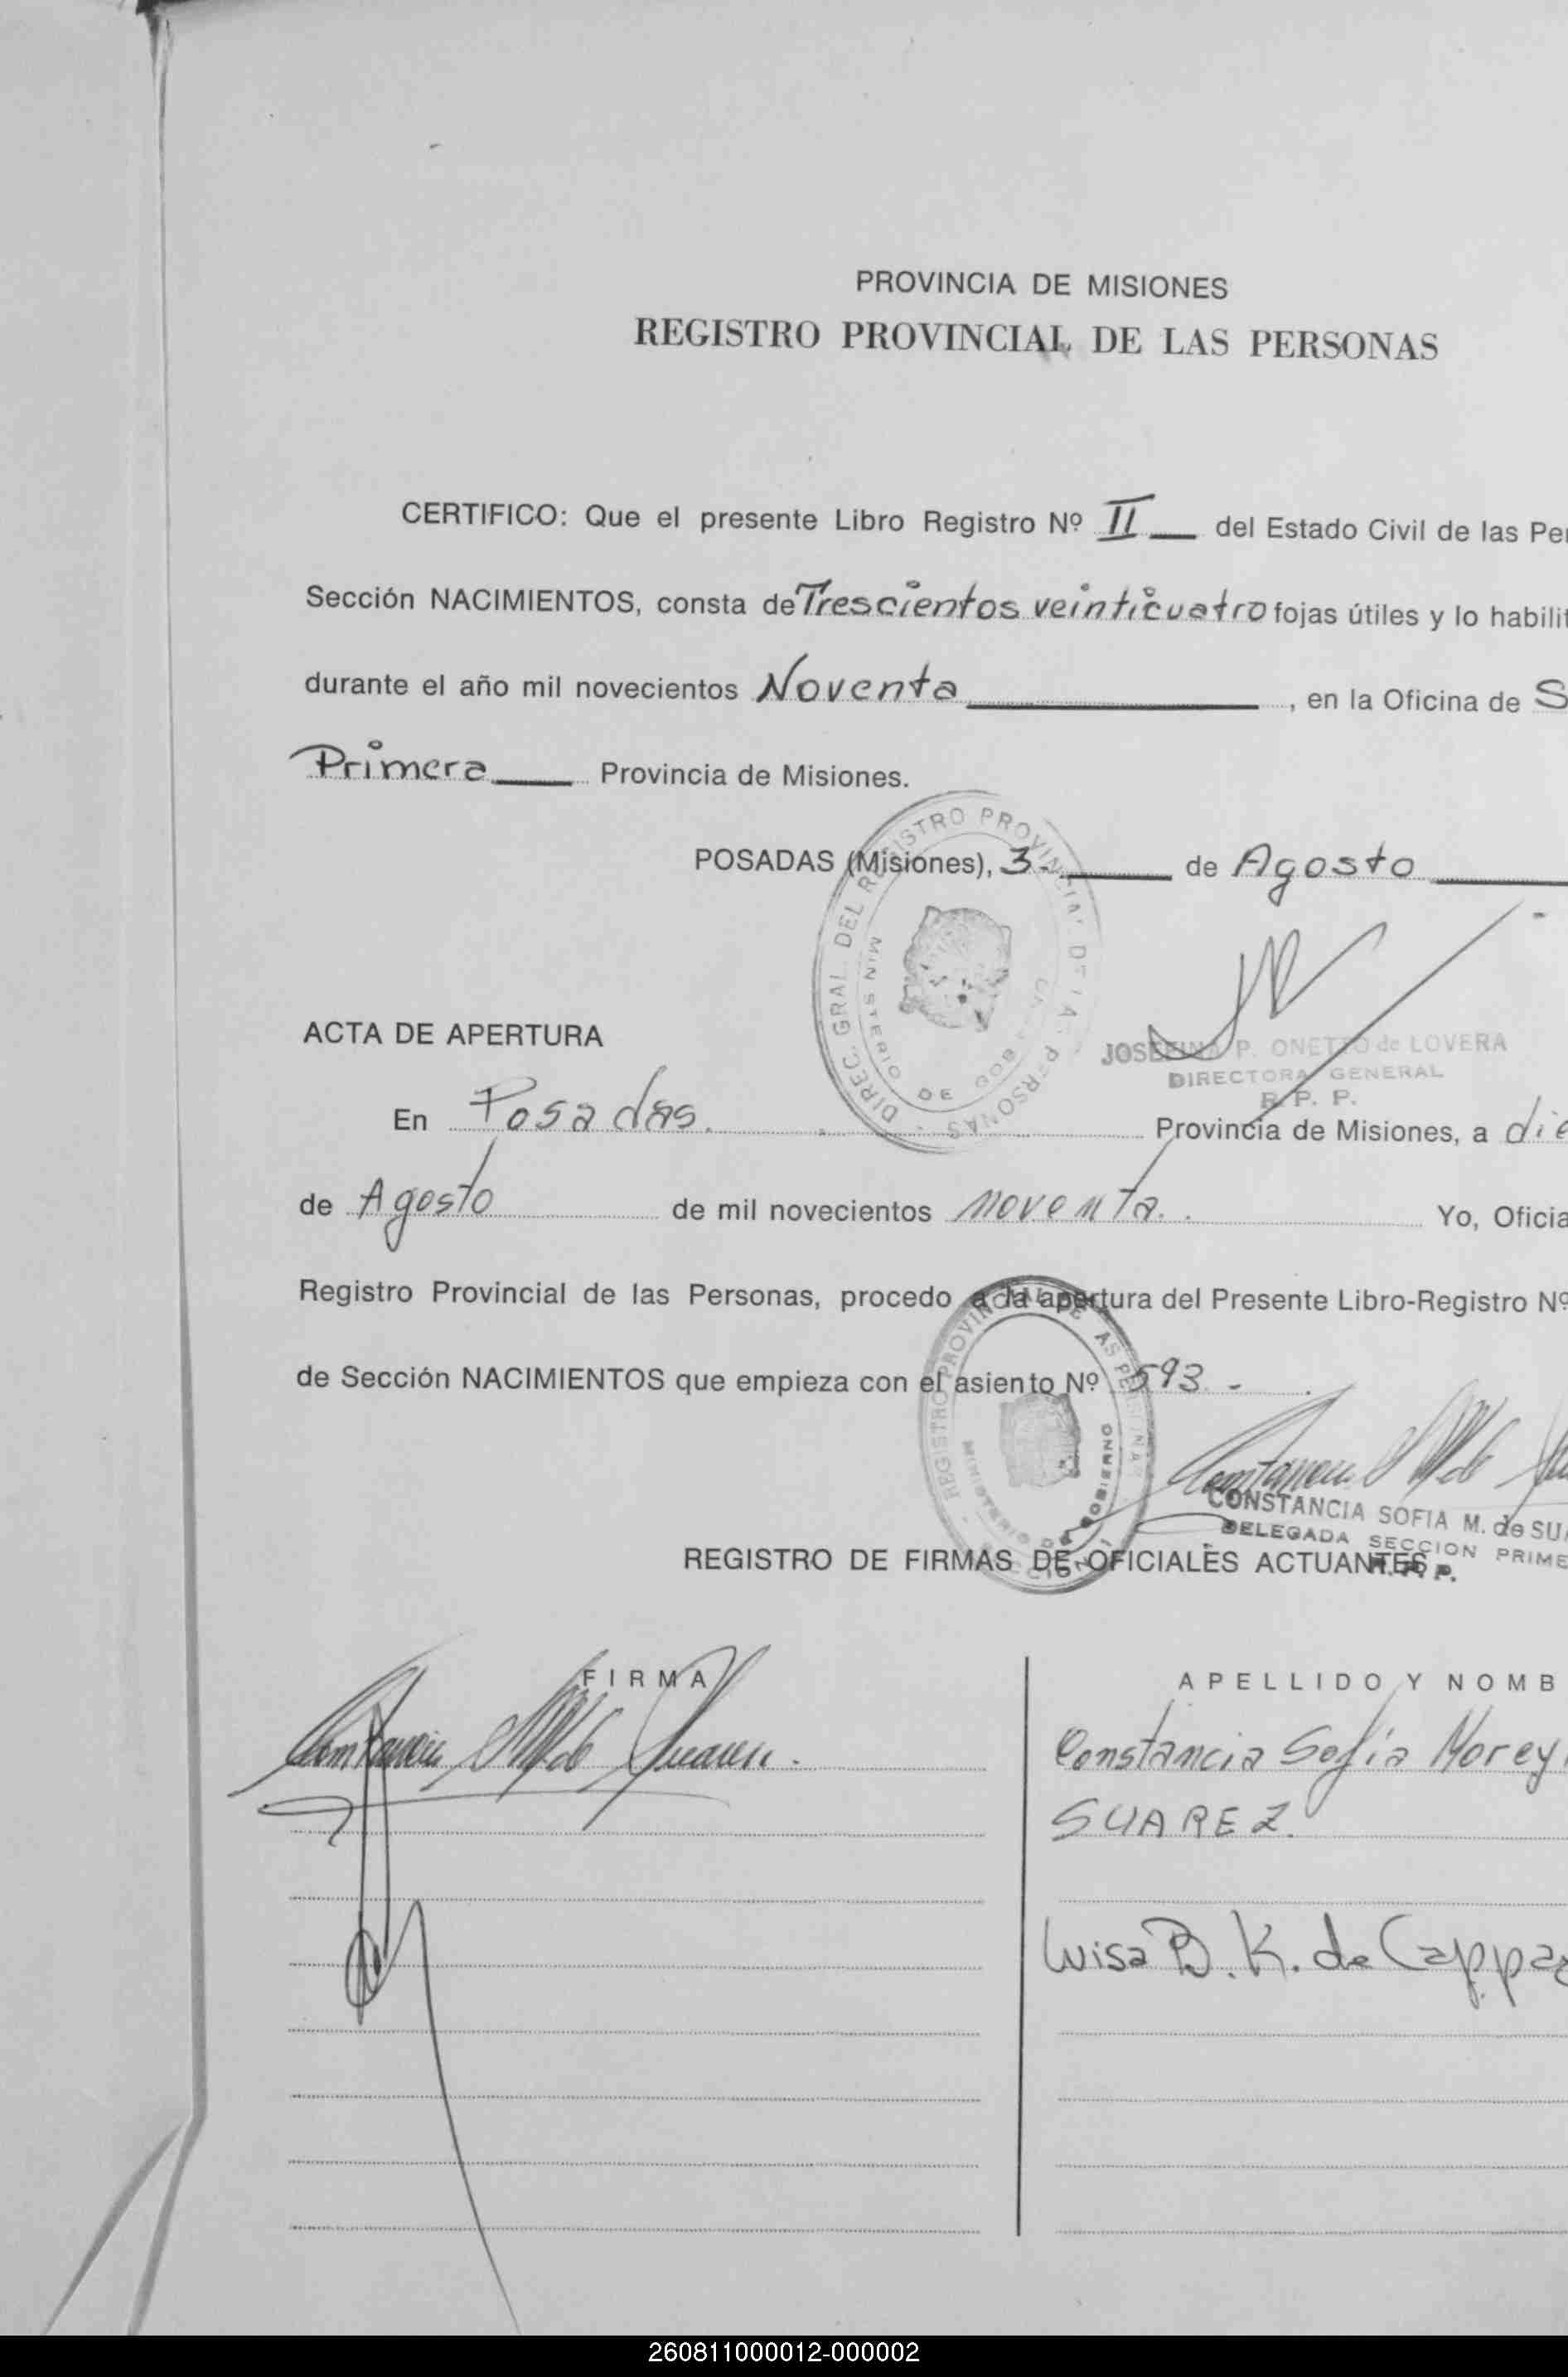 PROVINCIA DE MISIONES
REGISTRO PROVINCIAL DE LAS PERSONAS
CERTIFICO: Que el presente Libro Registro Nº II del Estado Civil de las Per
Sección NACIMIENTOS, consta de Trescientos veinticuatro fojas útiles y lo habilit
durante el año mil novecientos Noventa, en la Oficina de S
Primera Provincia de Misiones.
POSADAS (Misiones), 3- de Agosto
DIREC. GRAL. DEL REGISTRO PROVINCIAL DE LAS PERSONAS
MINISTERIO DE GOB
JOSEFINA P. ONETTO de LOVERA
DIRECTORA GENERAL
R. P. P.
ACTA DE APERTURA
En Posadas. Provincia de Misiones, a die
de Agosto de mil novecientos noventa. Yo, Oficia
Registro Provincial de las Personas, procedo a la apertura del Presente Libro-Registro Nº
de Sección NACIMIENTOS que empieza con el asiento Nº 593 -
REGISTRO PROVINCIAL DE LAS PERSONAS
MINISTERIO DE GOBIERNO
CONSTANCIA SOFIA M. de SUA
DELEGADA SECCION PRIME
R. P. P.
REGISTRO DE FIRMAS DE OFICIALES ACTUANTES
FIRMA APELLIDO Y NOMB
Constancia Sofía Morey
SUAREZ.
Luisa B. K. de Cappa
260811000012-000002